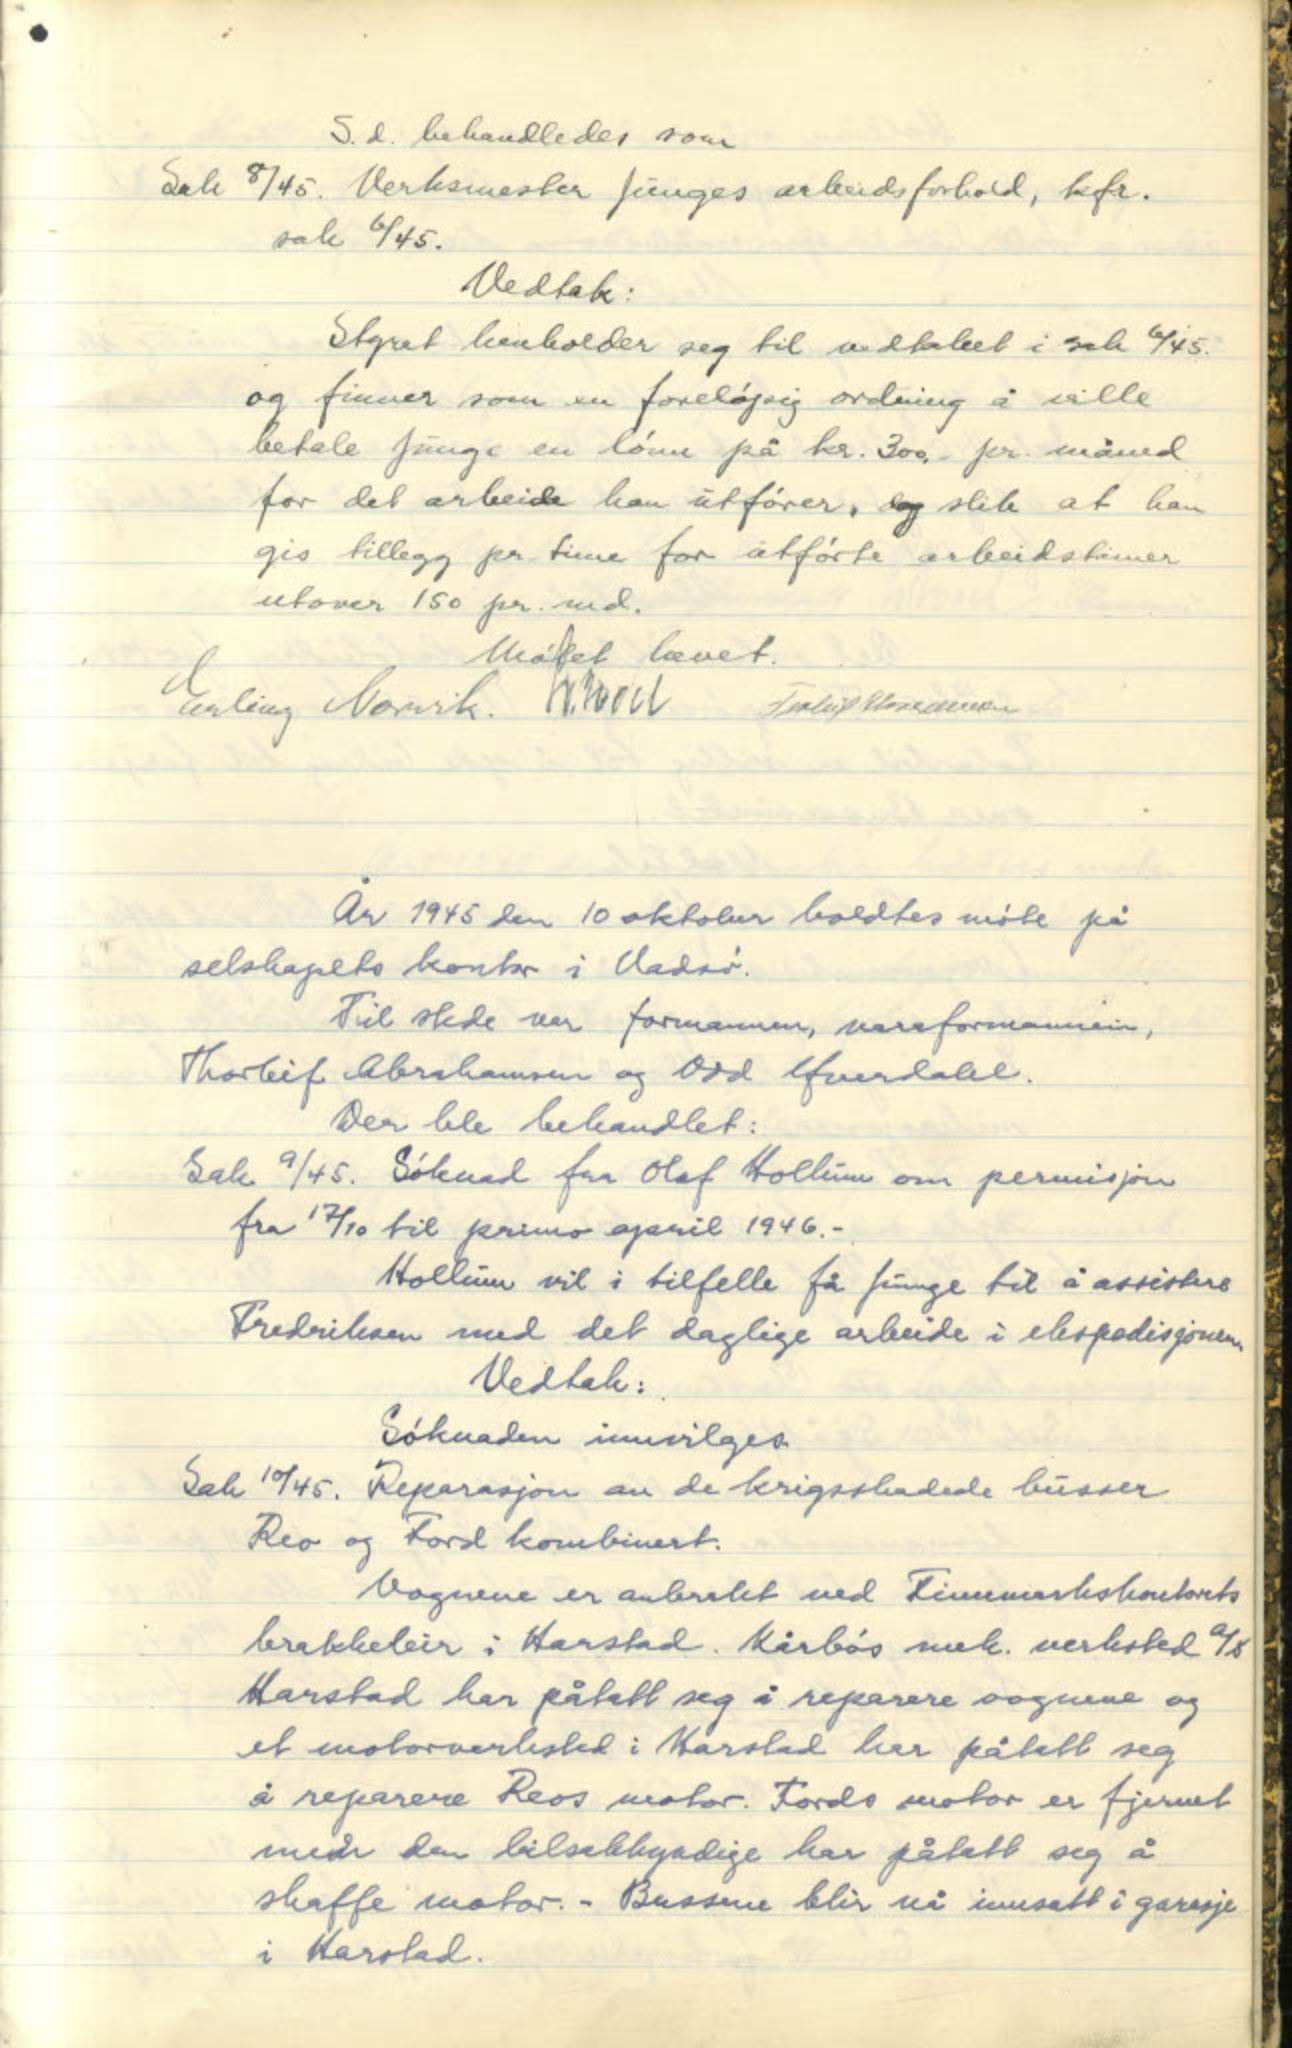 S.d. behandledes som
Sak 8/45. Verksmester Junges arbeidsforhold, kfr.
sak 6/45.
Vedtak:
Styret henholder seg til vedtaket i sak 6/45.
og finner som en foreløpig ordning å ville
betale Junge en lønn på kr. 300,- pr. måned
for det arbeide han utfører, slik at han
gis tillegg pr. time for utførte arbeidstimer
utover 150 pr. md.
Møtet hevet.
Erling Norvik.
År 1945 den 10 oktober holdtes møte på
selskapets kontor i Vadsø.
Til stede var formannen, varaformannen,
Thorleif Abrahamsen og Odd
Der ble behandlet:
Sak 9/45. Søknad fra Olaf Hollum om permisjon
fra 17/10 til primo april 1946.-
Hollum vil i tilfelle få Junge til å assistere
Fredriksen med det daglige arbeide i ekspedisjonen.
Vedtak:
Søknaden innvilges.
Sak 10/45. Reparasjon av de krigsskadede busser
Reo og Ford kombinert.
Vognene er anbrakt ved Finnmarkskontorets
brakkeleir i Harstad. Kårbøs mek. verksted a/s
Harstad har påtatt seg å reparere vognene og
et motorverksted i Harstad har påtatt seg
å reparere Reos motor. Fords motor er fjernet
men den bilsakkyndige har påtatt seg å
skaffe motor. - Bussene blir nå innsatt i garasje
i Harstad.